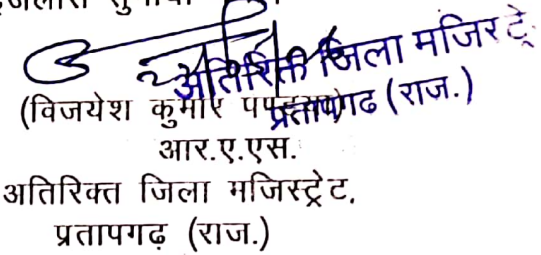 अतिरिक्त जिला मजिस्ट्रे
प्रतापगढ (राज.)
(विजयेश कुमार
आर.ए.एस.
अतिरिक्त जिला मजिस्ट्रेट,
प्रतापगढ़ (राज.)